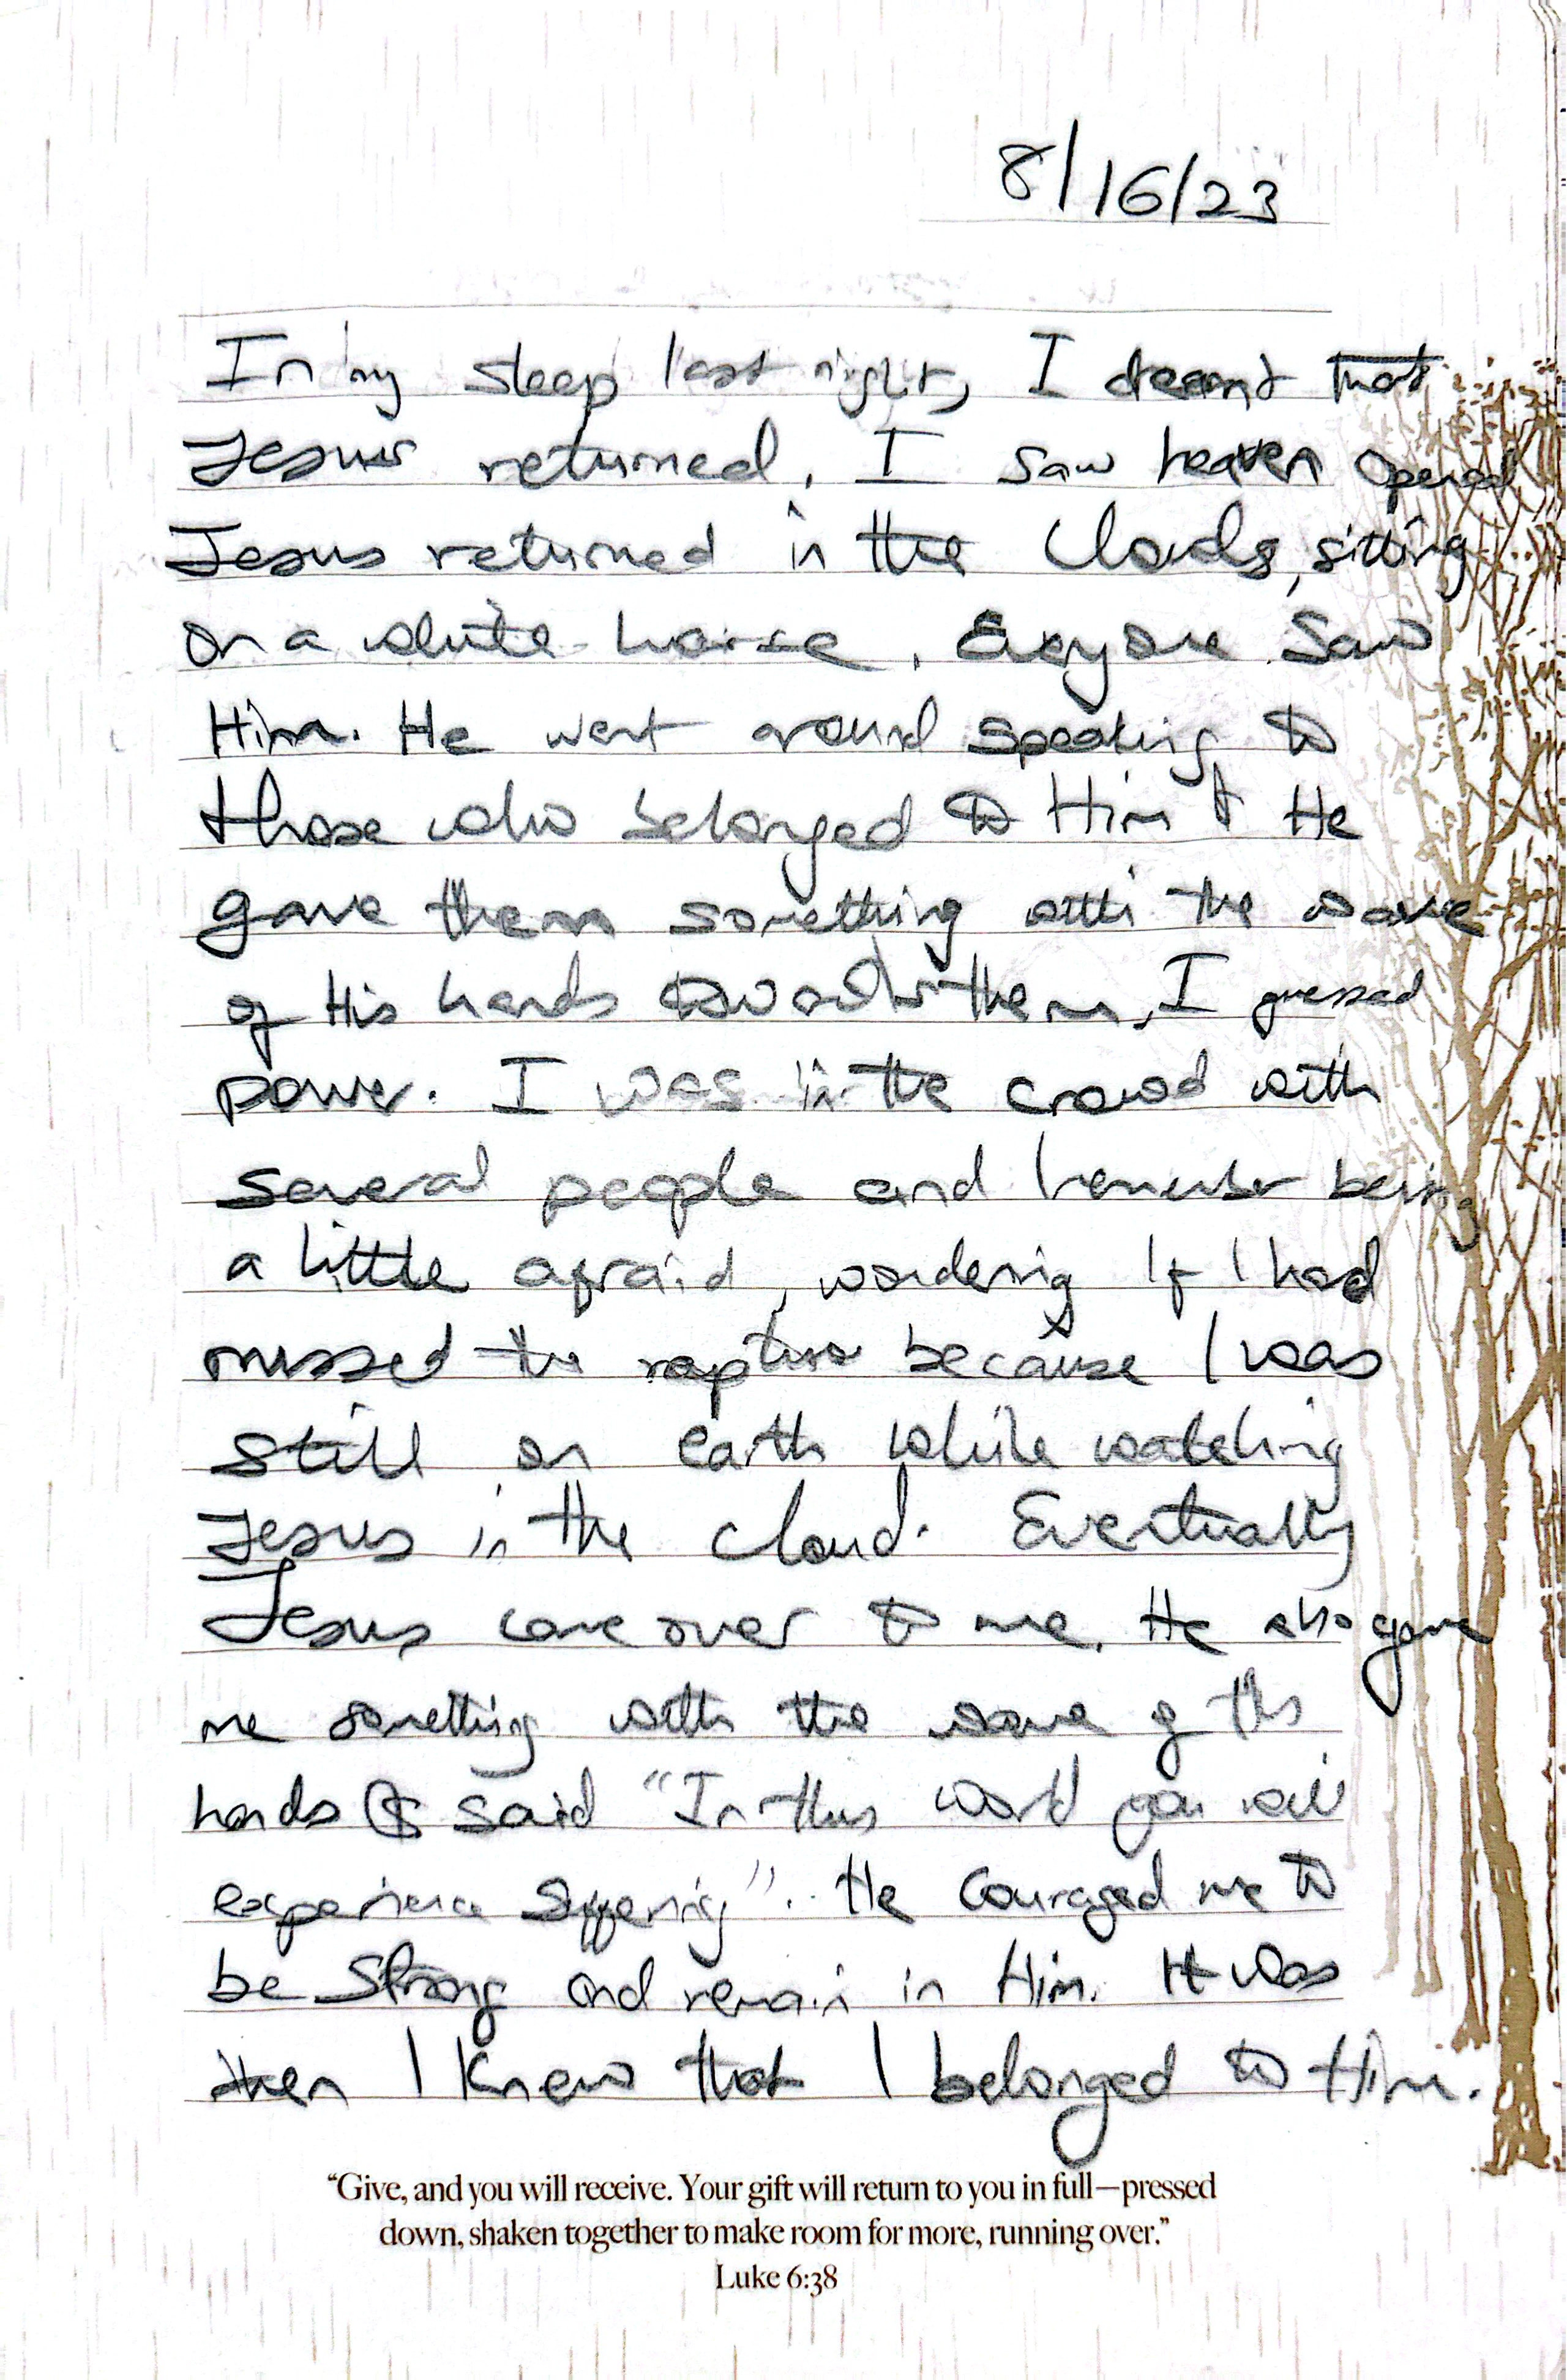 8/16/23
In my sleep last night, I dreamt that
Jesus returned. I saw heaven opened
Jesus returned in the Clouds, sitting
on a white horse. Everyone saw
Him. He went around speaking to
those who belonged to Him & He
gave them something with the wave
of His hands towards them, I guessed
power. I was in the crowd with
several people and I remember being
a little afraid, wondering If I had
missed the rapture because I was
still on earth while watching
Jesus in the cloud. Eventually
Jesus came over to me. He also gave
me something with the wave of His
hands & said "In this world you will
experience suffering". He Couraged me to
be strong and remain in Him. It was
then I knew that I belonged to Him.
“Give, and you will receive. Your gift will return to you in full—pressed
down, shaken together to make room for more, running over.”
Luke 6:38